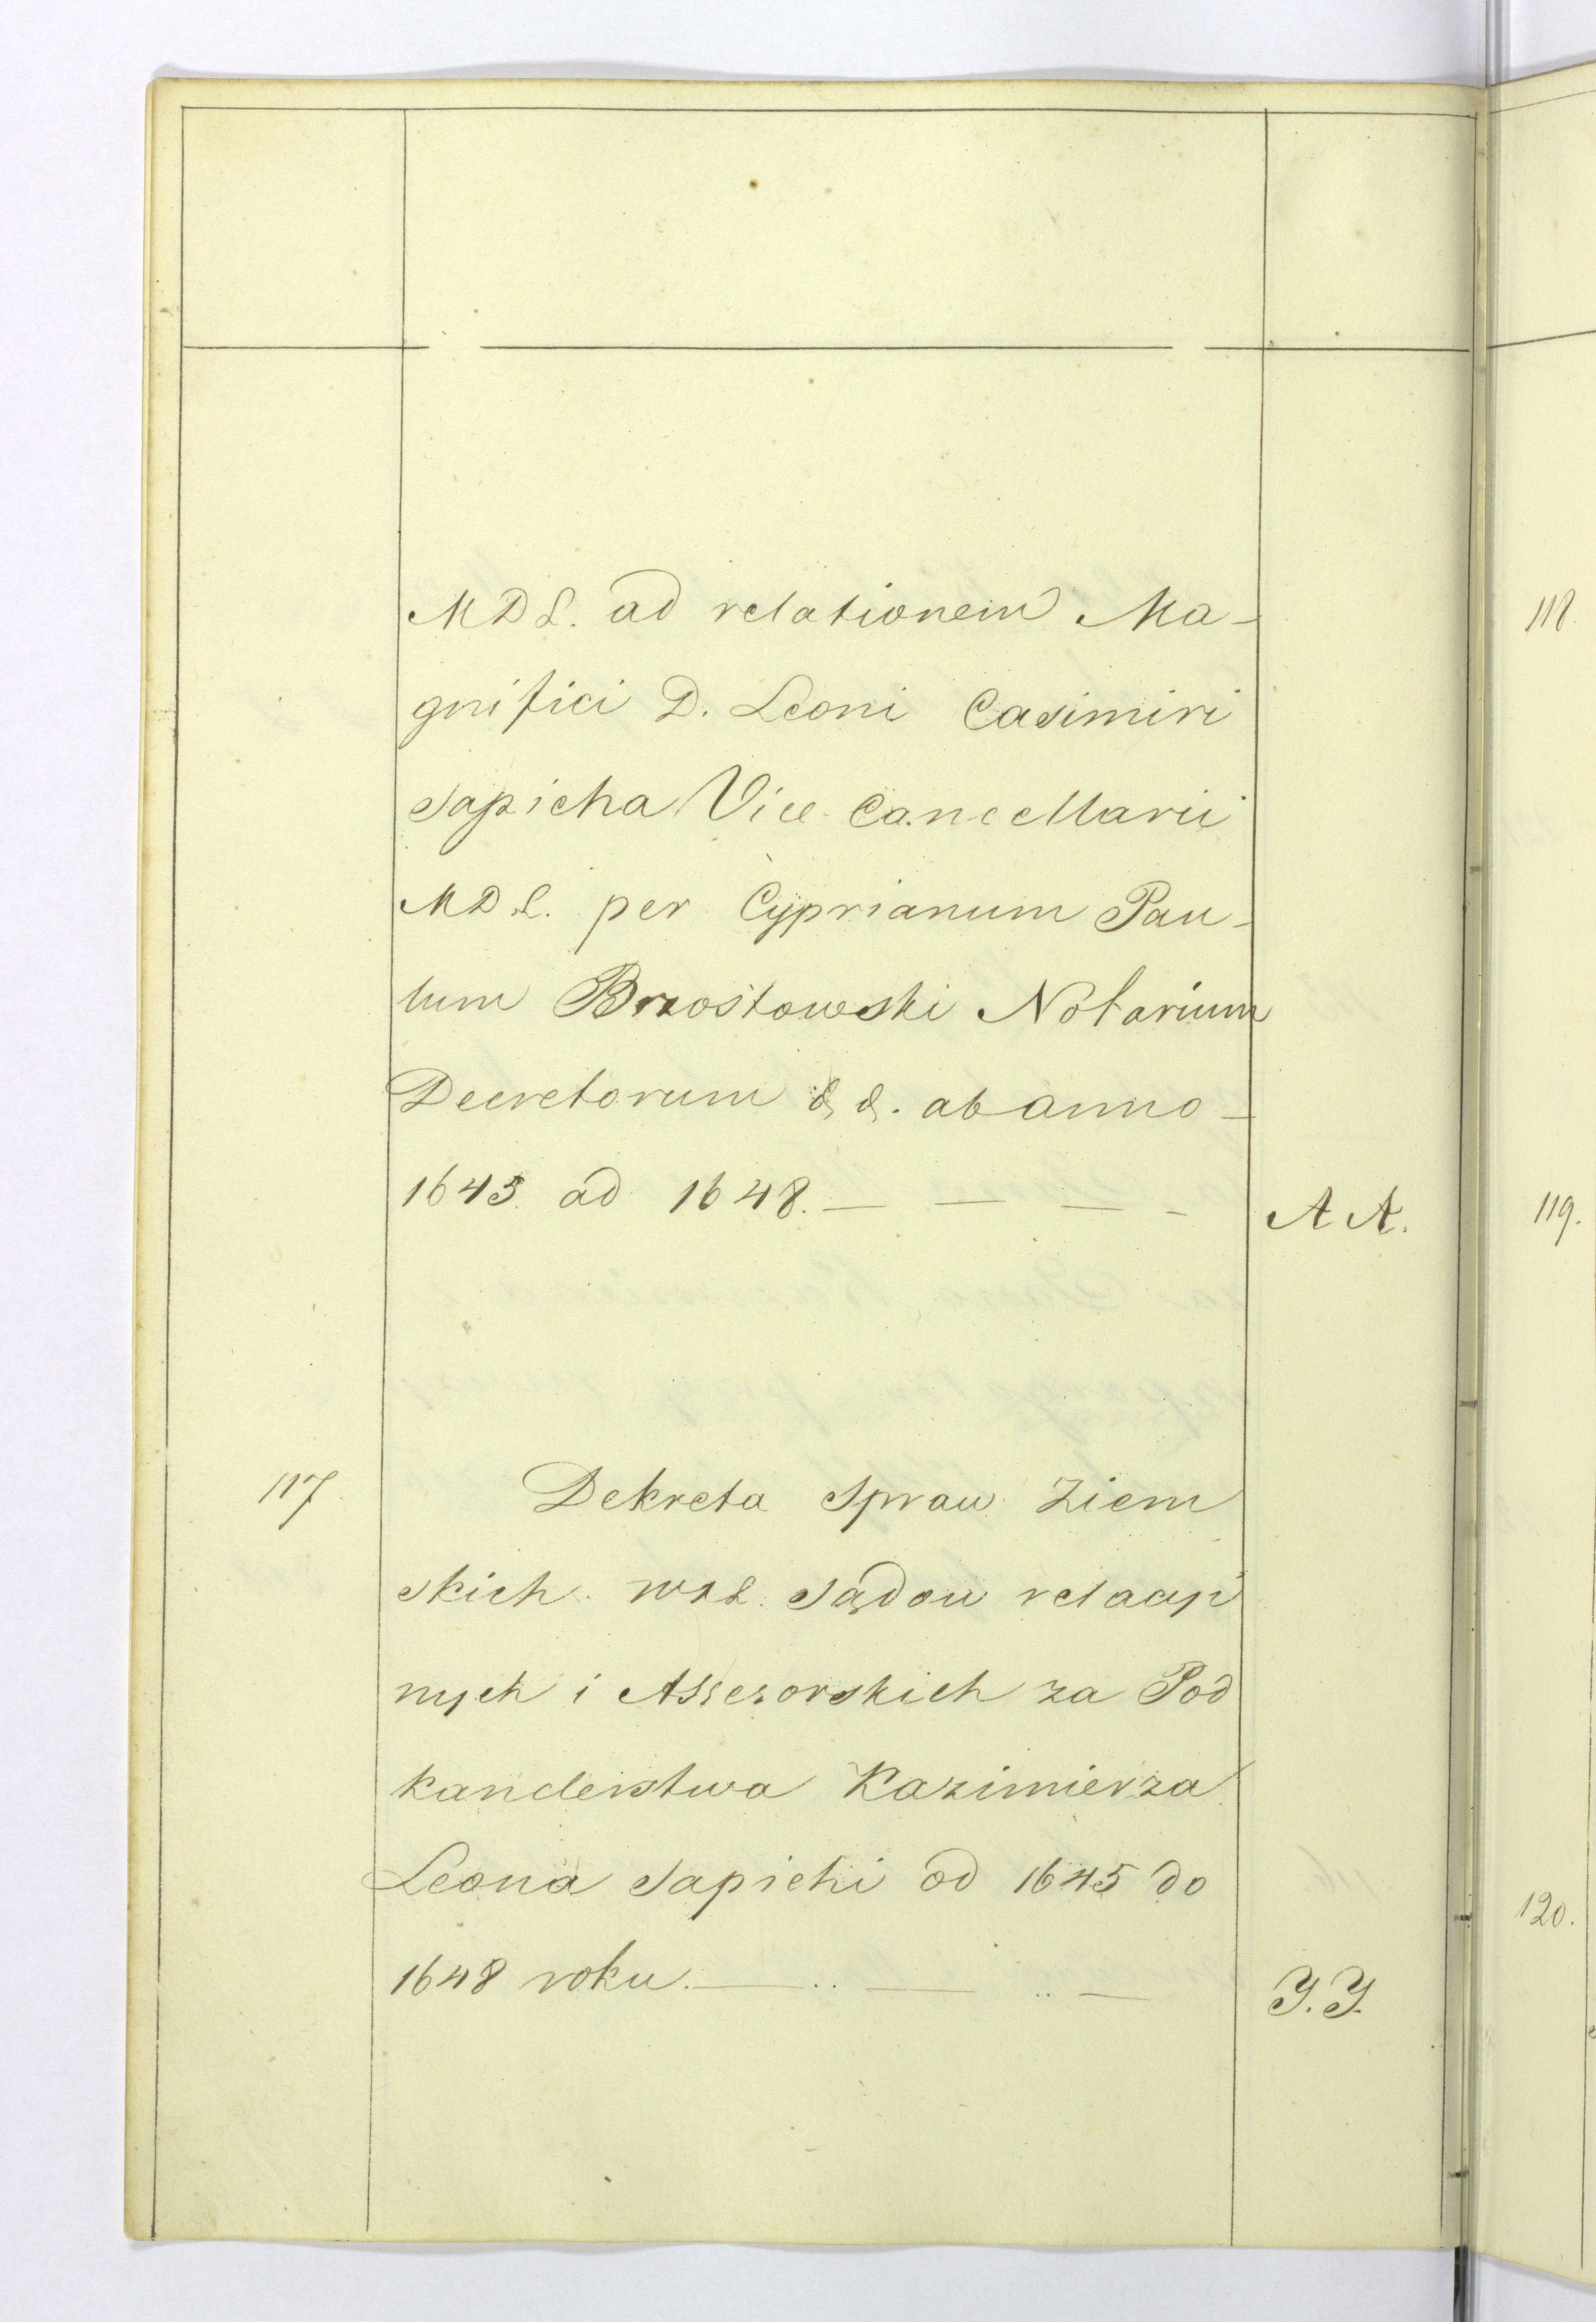 MDL. ad relationem Ma-
gnifici D. Leoni Casimiri
Sapieha Vice Cancellarii
MDL. per Cyprianum Pau-
lum Brzostowski Notarium
Decretorum &&. ab anno
1643 ad 1648. — — — -
A A.
117
Dekreta Spraw Ziem
skich. WXL. Sądow relacyi
nych i Assesorskich za Pod
kanclerstwa Kazimierza
Leona Sapiehi od 1645 do
1648 roku. — .. — .. —
Y.Y.
118.
119.
120.